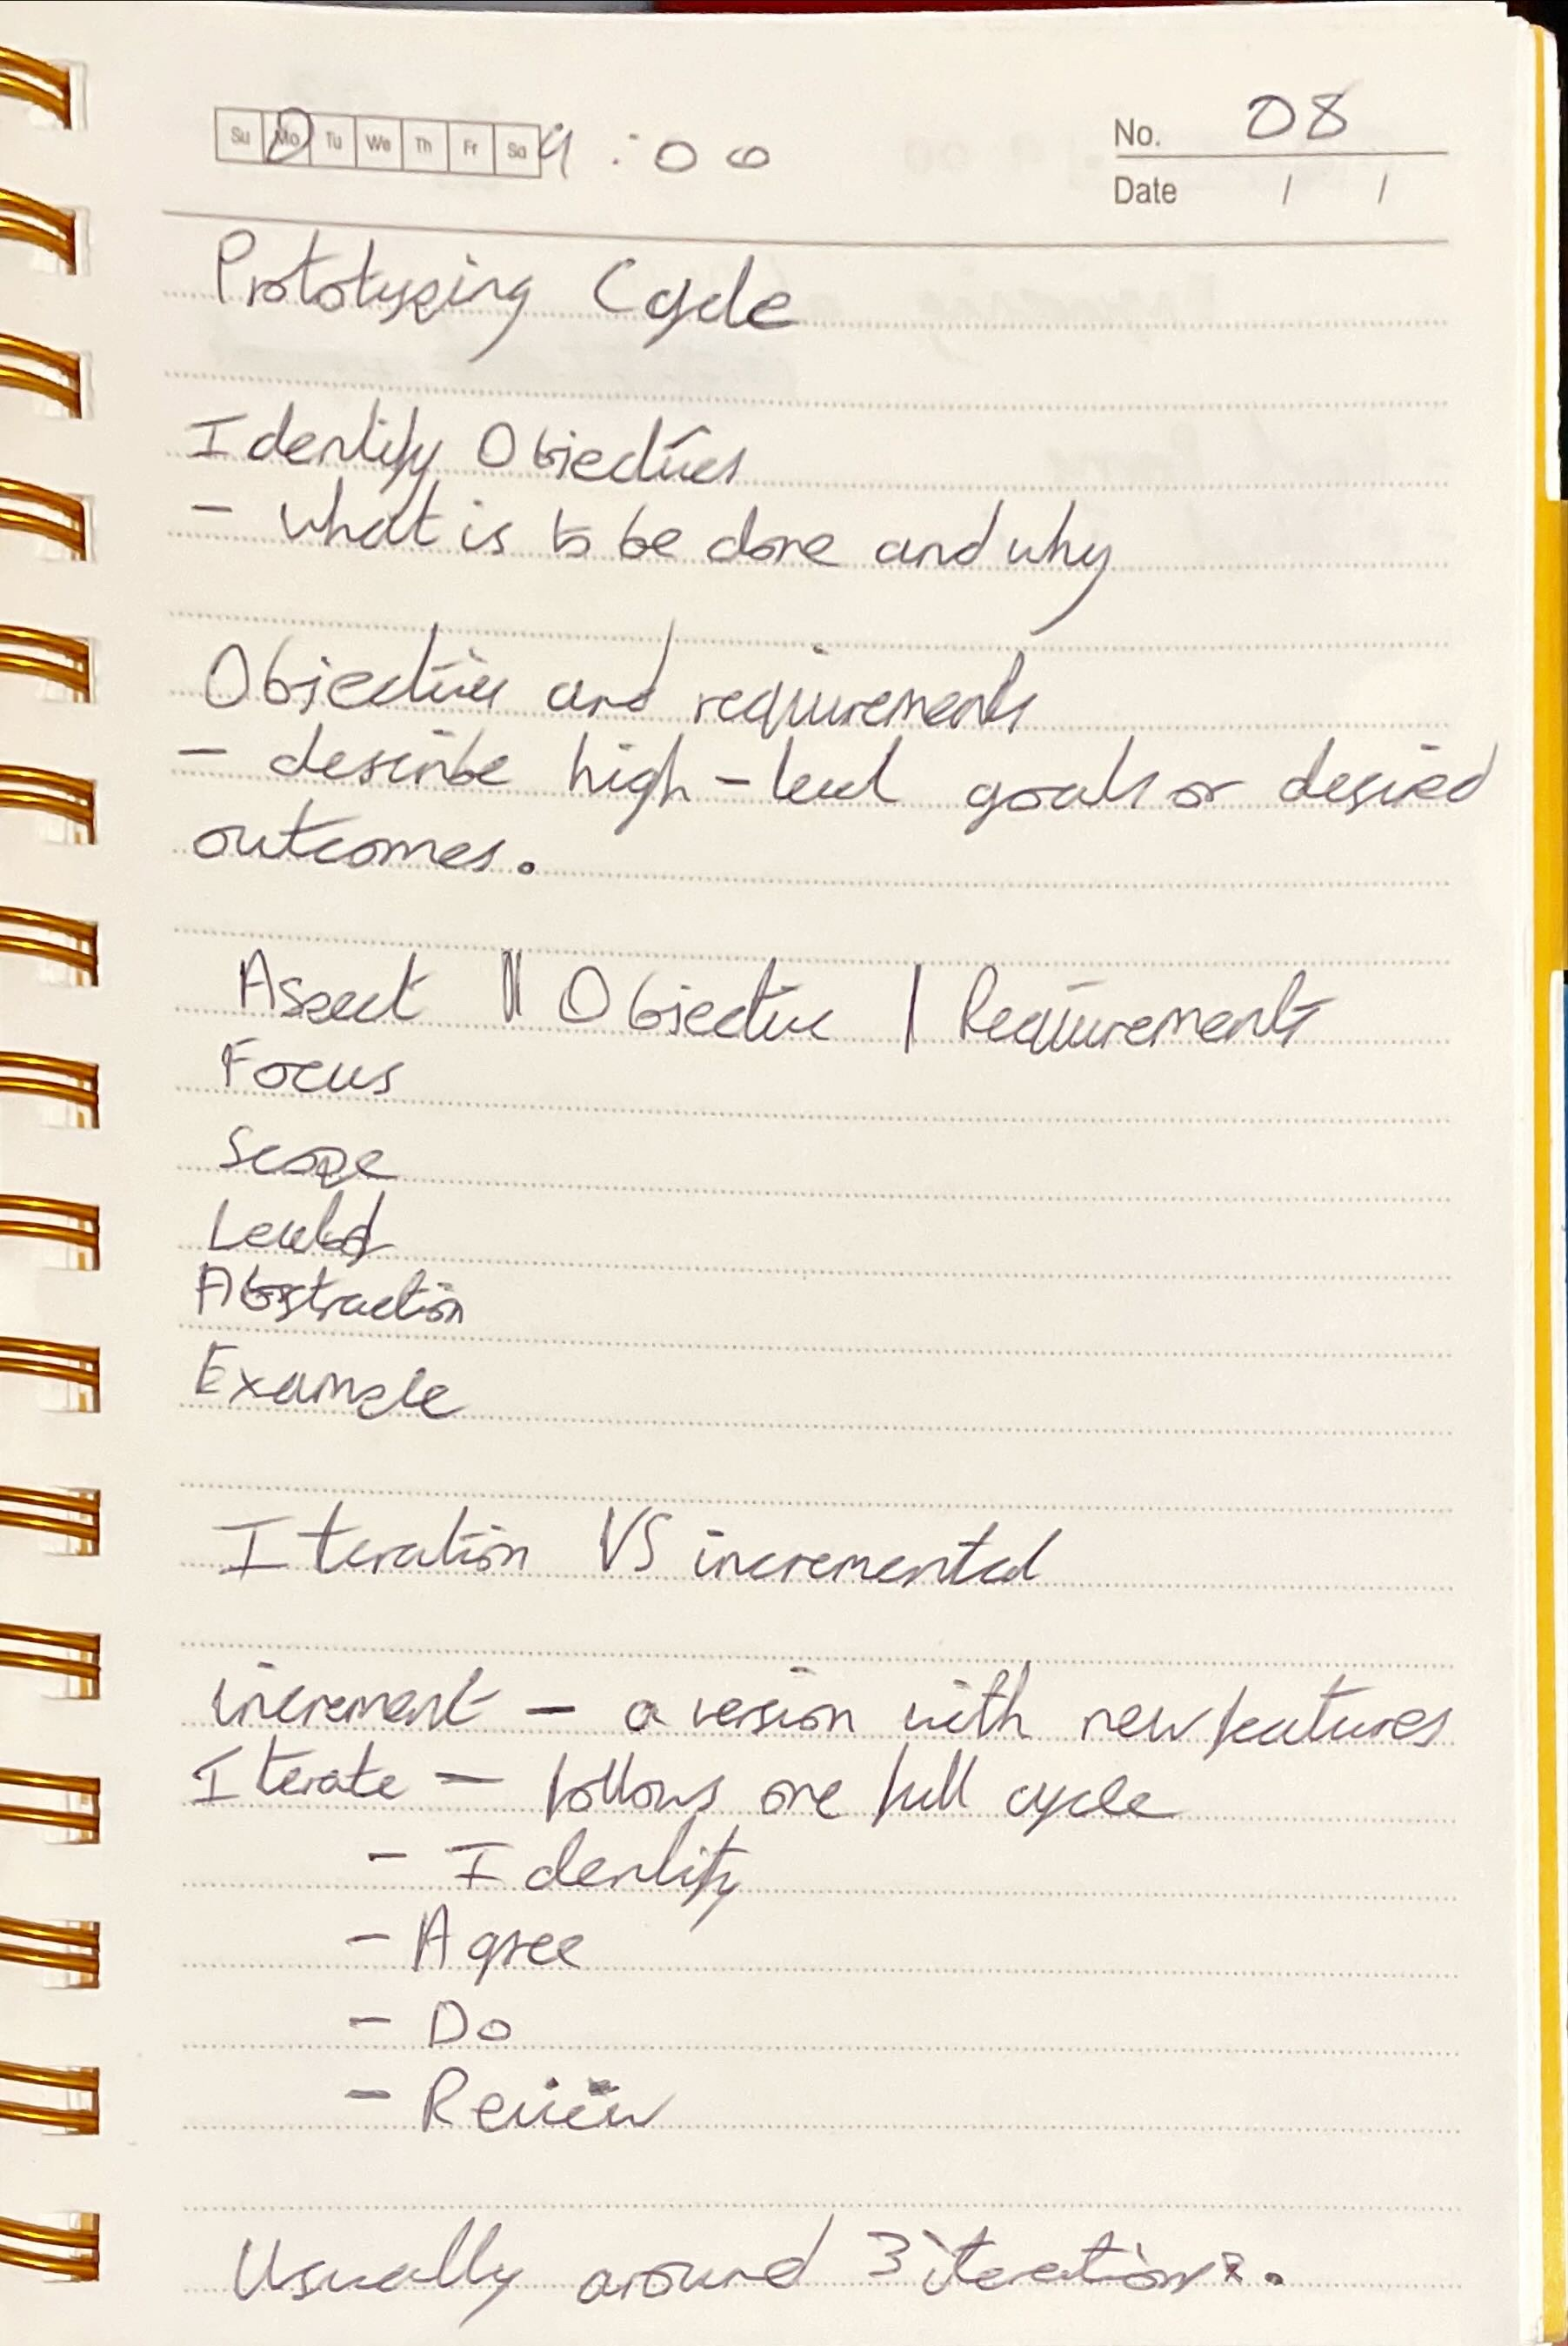 Su Mo Tu We Th Fr Sa 9:00
No. 08
Date / /
Prototyping Cycle
Identify Objectives
- what is to be done and why
Objectives and requirements
- describe high-level goals or desired
outcomes.
Aspect || Objective | Requirements
Focus
Scope
Level of
Abstraction
Example
Iteration VS incremental
increment - a version with new features
Iterate - follows one full cycle
- Identify
- Agree
- Do
- Review
Usually around 3 iterations.